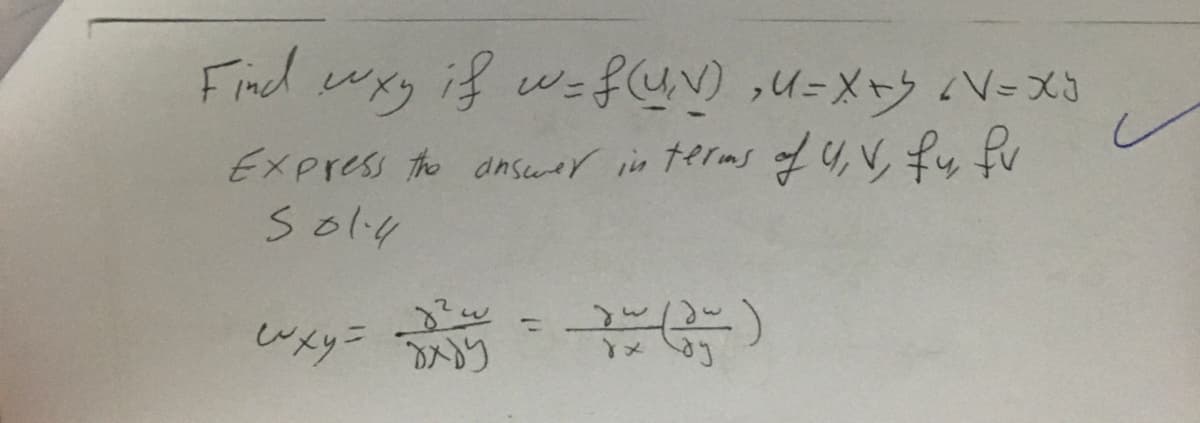 Find wxy if w=f(u,v) , u=x+y , v=xy
Express the answer in terms of u, v, fu, fv
Sol.
wxy = ∂²w/∂x∂y = ∂w/∂x (∂w/∂y)